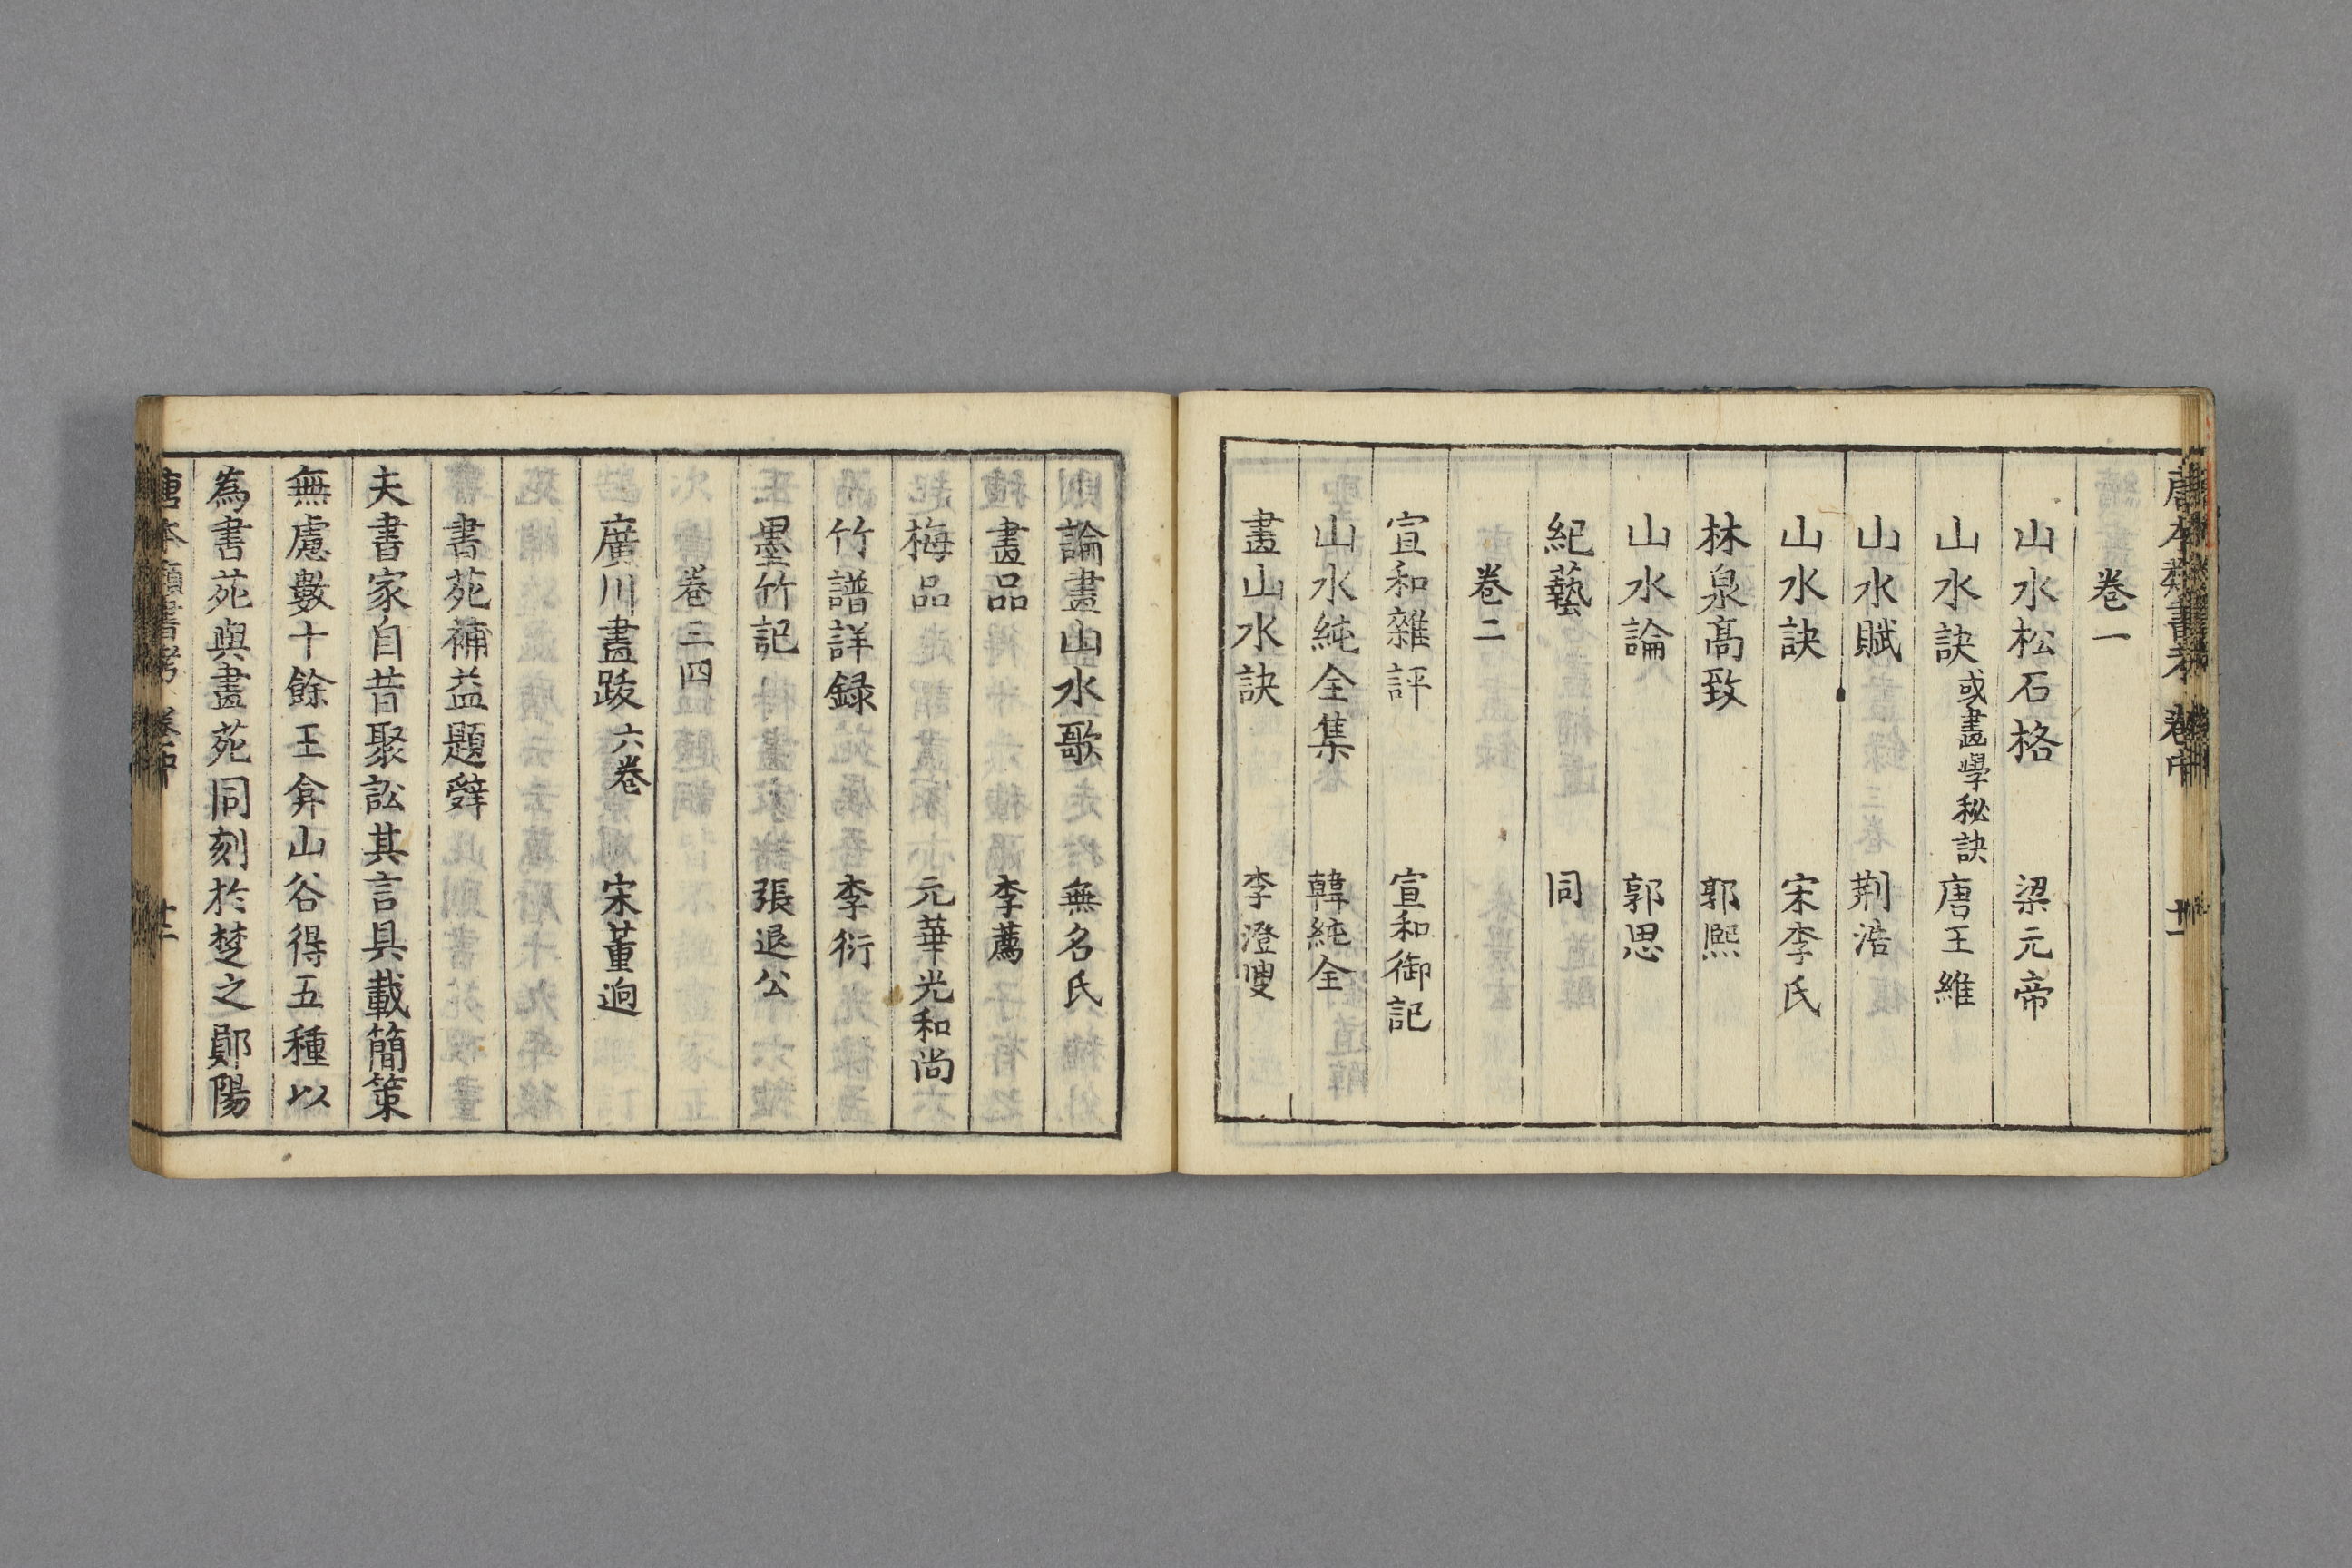 唐本類書考 卷中
卷一
山水松石格 梁元帝
山水訣 或畫學秘訣 唐王維
山水賦 荆浩
山水訣 宋李氏
林泉髙致 郭熈
山水論 郭思
紀藝 同
卷二
宣和雜評 宣和御記
山水純全集 韓純全
畫山水訣 李澄叟
論畫山水歌 無名氏
畫品 李薦
梅品 元華光和尚
竹譜詳録 李衍
墨竹記 張退公
卷三四
廣川畫跋 六卷 宋董逌
書苑補益題辤
夫書家自昔聚訟其言具載簡策
無慮數十餘王弇山谷得五種以
為書苑與畫苑同刻於楚之鄖陽
唐本類書考 卷中